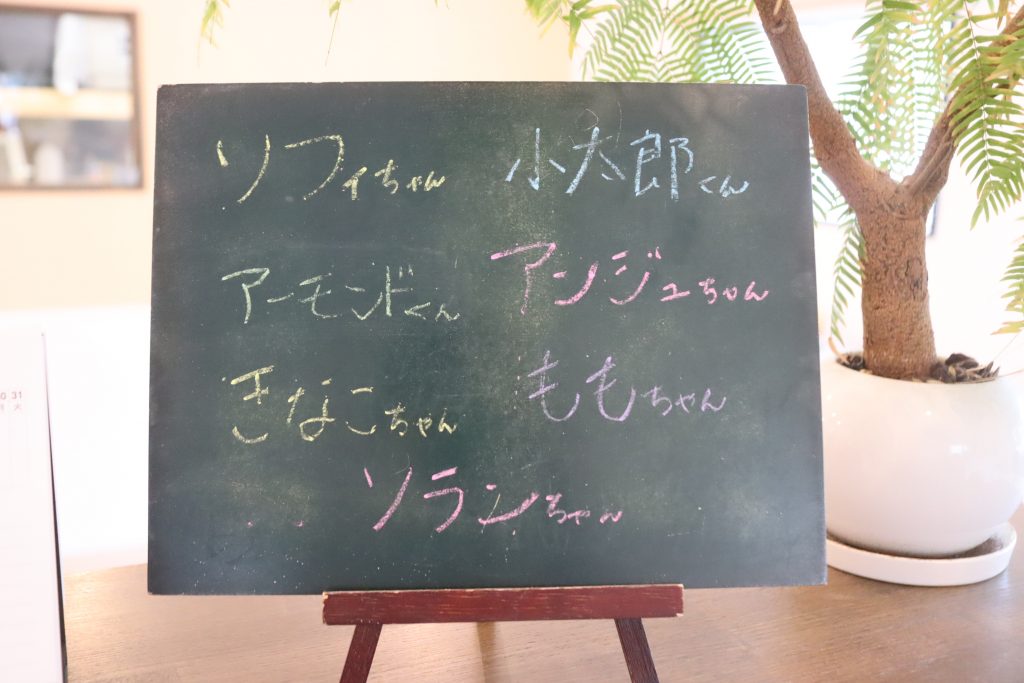 ソフィちゃん 小太郎くん
アーモンドくん アンジュちゃん
きなこちゃん ももちゃん
ソランちゃん
30 31
月 火